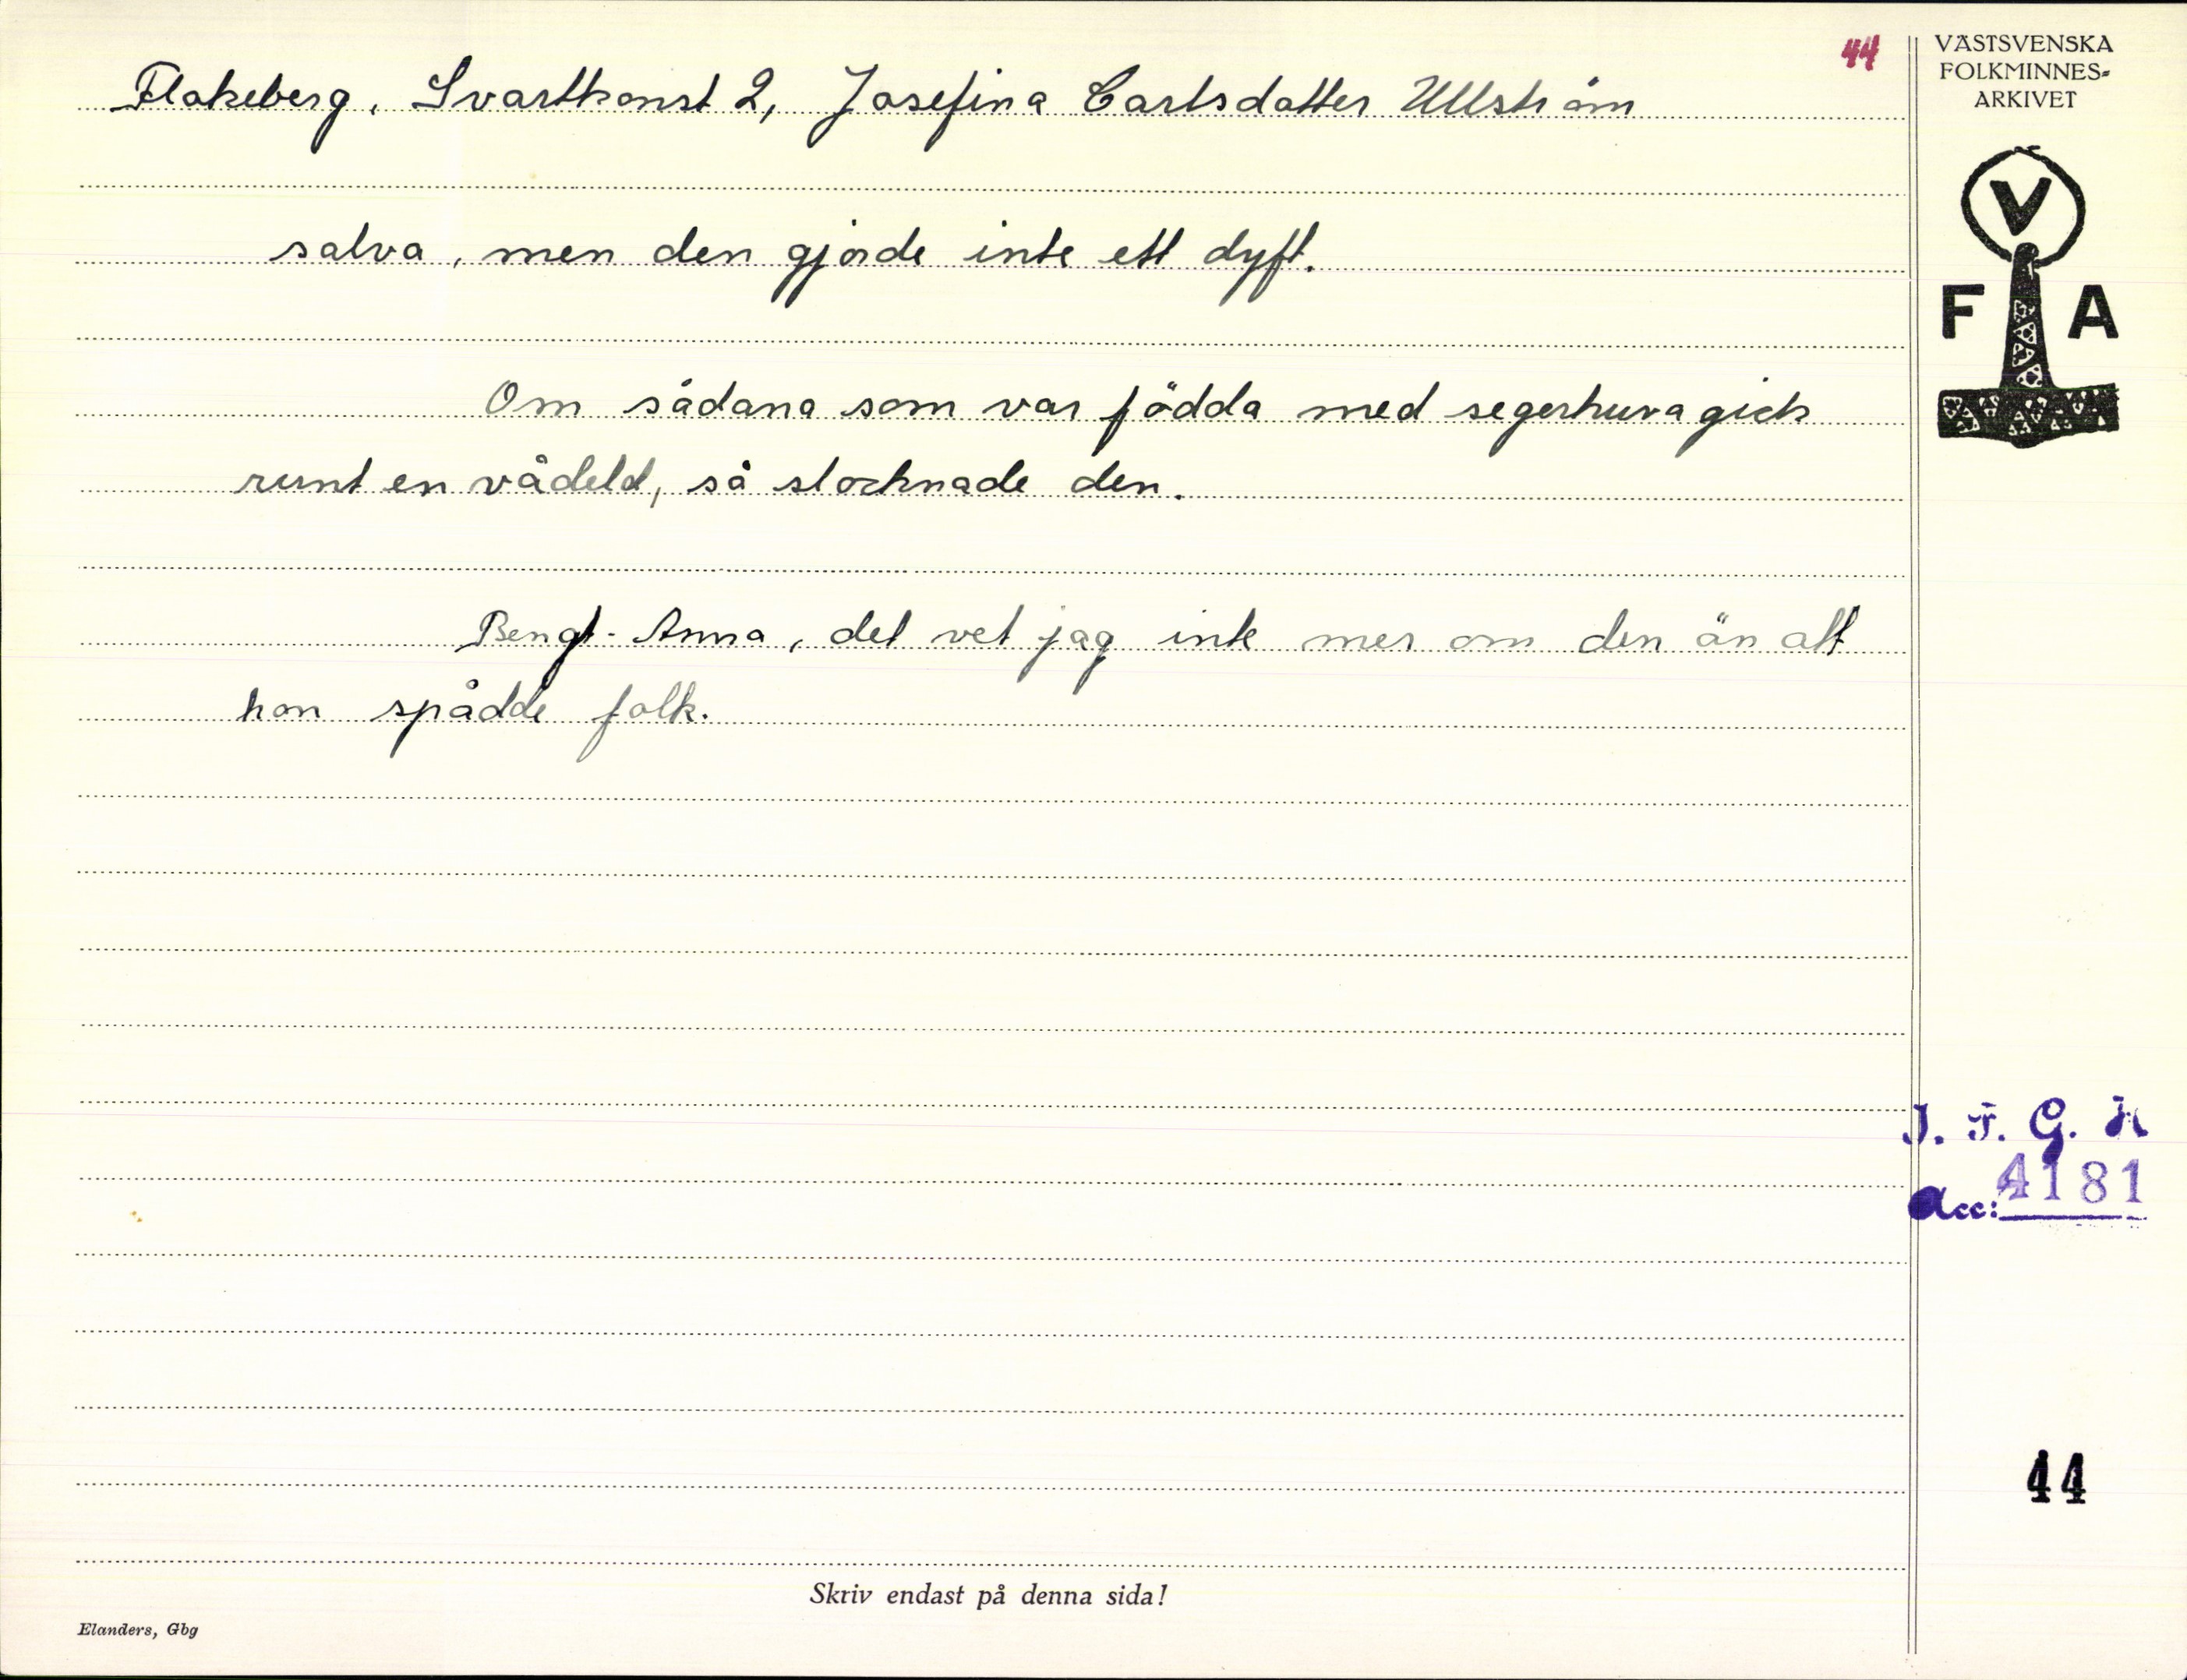 44
Flakeberg, Svartkonst 2, Josefina Carlsdotter Ullström
salva, men den gjorde inte ett dyft.
Om sådana som var födda med segerhuva gick
runt en vådeld, så slocknade den.
Bengt-Anna, det vet jag inte mer om den än att
hon spådde folk.
VÄSTSVENSKA
FOLKMINNES-
ARKIVET
V
F A
I. F. G. H
Acc: 4181
44
Skriv endast på denna sida!
Elanders, Gbg